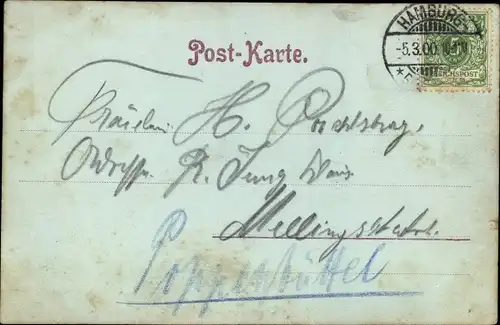 HAMBURG
-5.3.00.
REICHSPOST
Post-Karte.
Fräulein H.
Adresse R. Jung
Mellingstedt.
Poppenbüttel